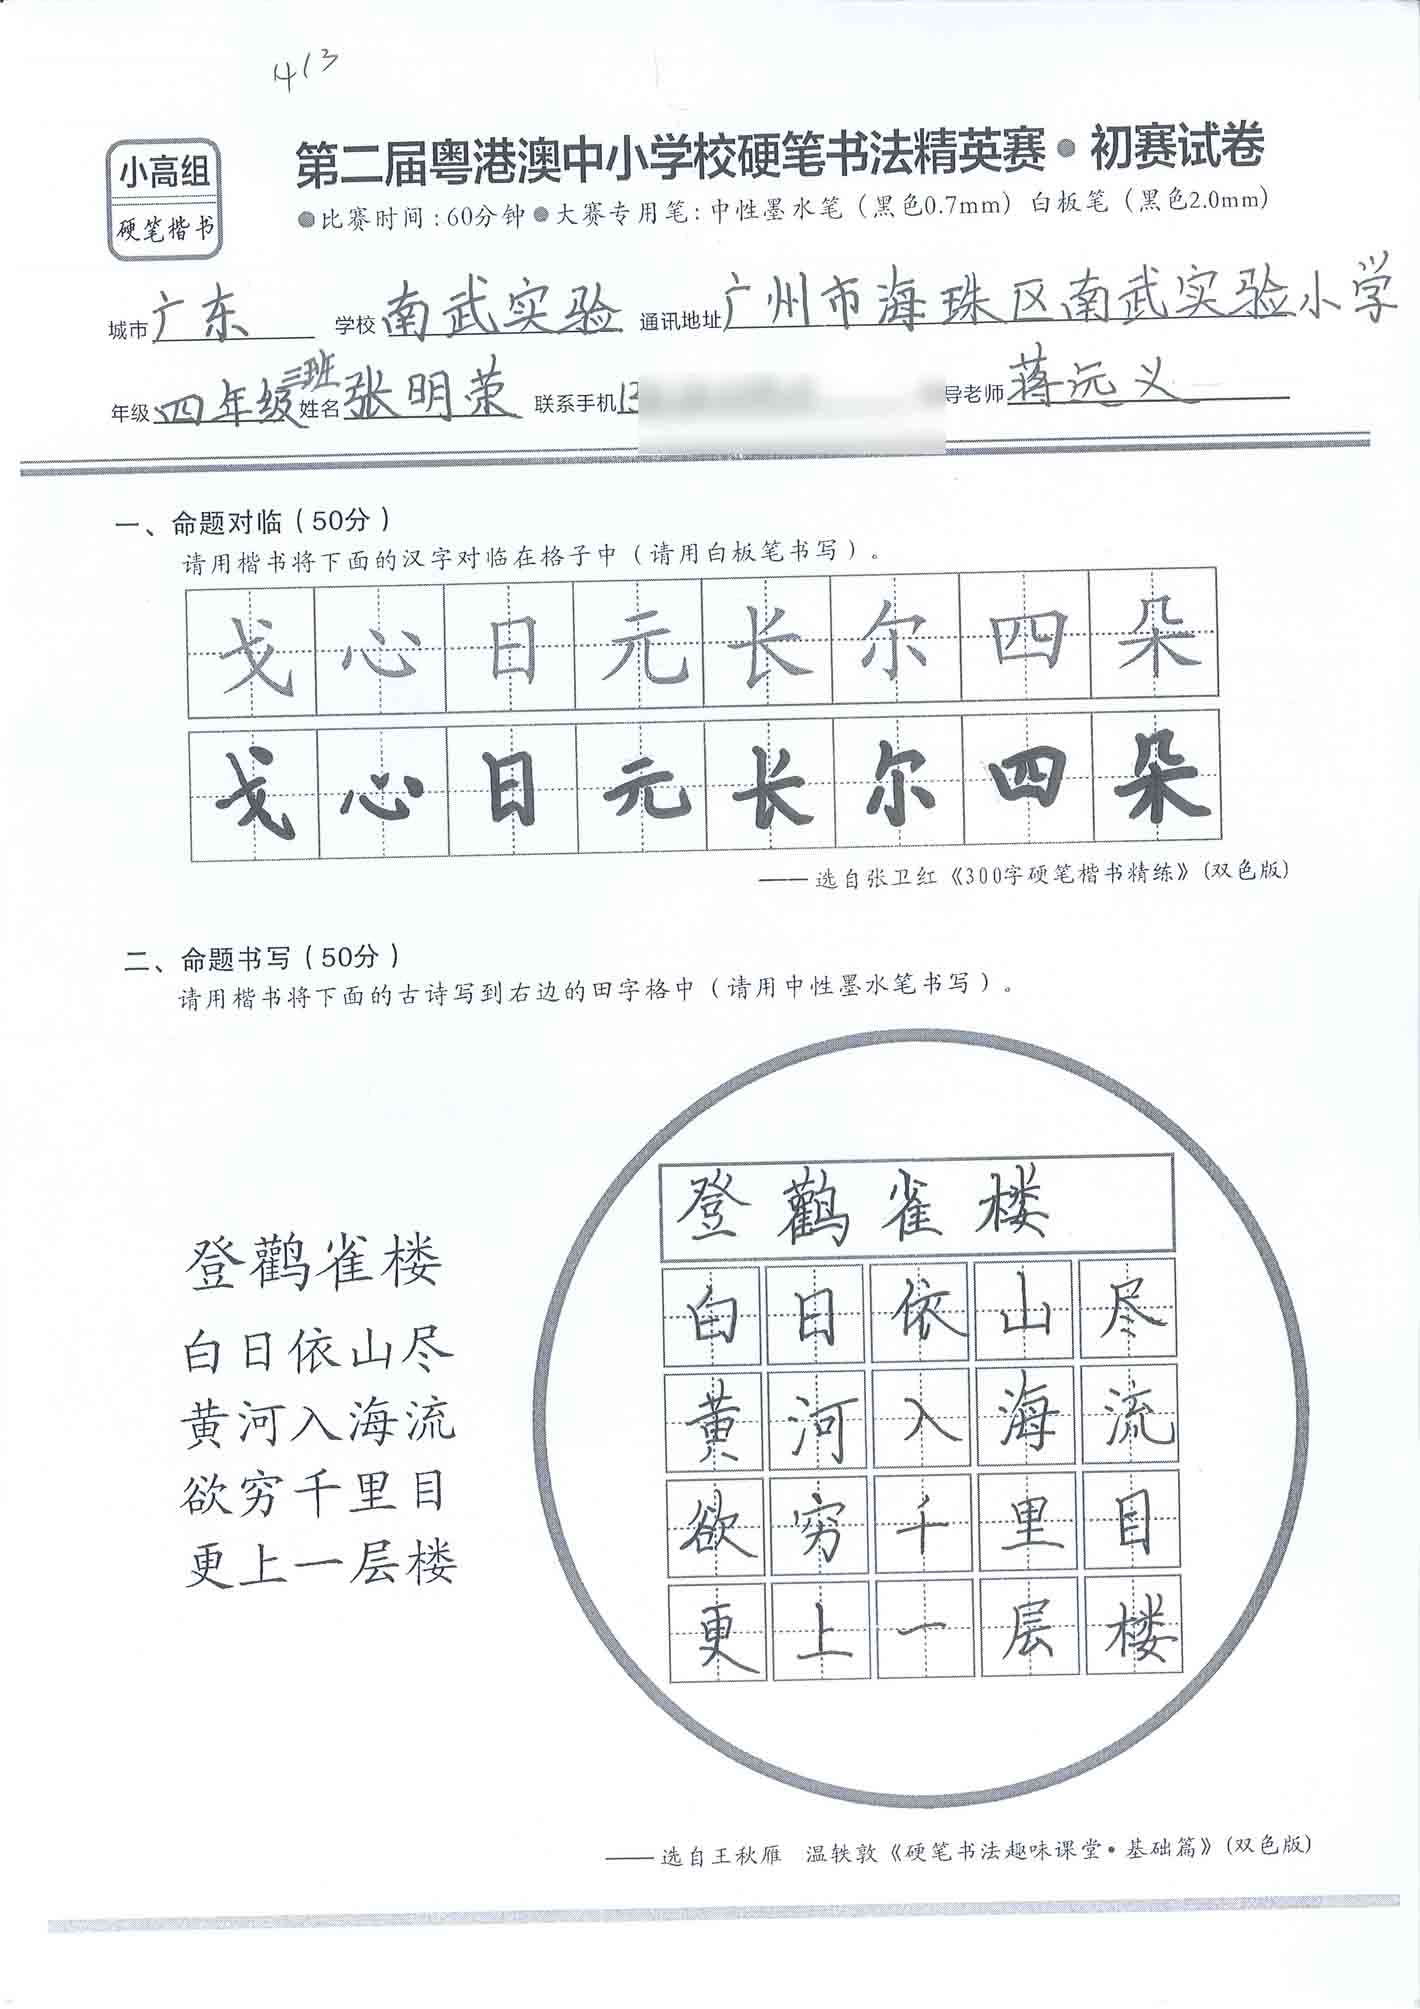 413
小高组
硬笔楷书
第二届粤港澳中小学校硬笔书法精英赛●初赛试卷
●比赛时间:60分钟●大赛专用笔:中性墨水笔（黑色0.7mm）白板笔（黑色2.0mm）
城市 广东 学校 南武实验 通讯地址 广州市海珠区南武实验小学
年级 四年级三班 姓名 张明荣 联系手机 13 导老师 蒋远义
一、命题对临（50分）
请用楷书将下面的汉字对临在格子中（请用白板笔书写）。
戈心日元长尔四朵
戈心日元长尔四朵
——选自张卫红《300字硬笔楷书精练》(双色版)
二、命题书写（50分）
请用楷书将下面的古诗写到右边的田字格中（请用中性墨水笔书写）。
登鹳雀楼
白日依山尽
黄河入海流
欲穷千里目
更上一层楼
登鹳雀楼
白日依山尽
黄河入海流
欲穷千里目
更上一层楼
——选自王秋雁 温轶敦《硬笔书法趣味课堂·基础篇》(双色版)